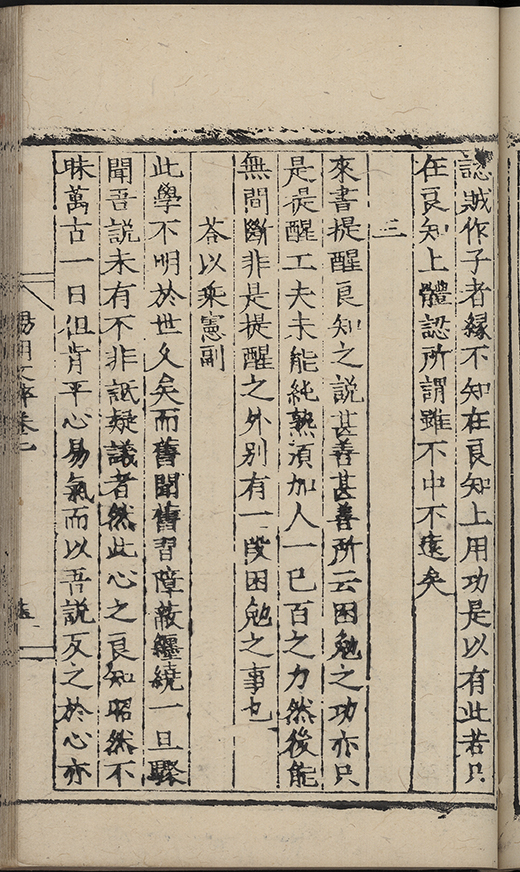 認賊作子者緣不知在良知上用功是以有此若只
在良知上體認所謂雖不中不遠矣
三
來書提醒良知之說甚善甚善所云困勉之功亦只
是提醒工夫未能純熟湏加人一已百之力然後能
無間斷非是提醒之外別有一段困勉之事也
荅以乘憲副
此學不明於世久矣而舊聞舊習障蔽纏繞一旦驟
聞吾說未有不非詆疑議者然此心之良知昭然不
昧萬古一日但肯平心易氣而以吾說反之於心亦
陽明文粹卷之